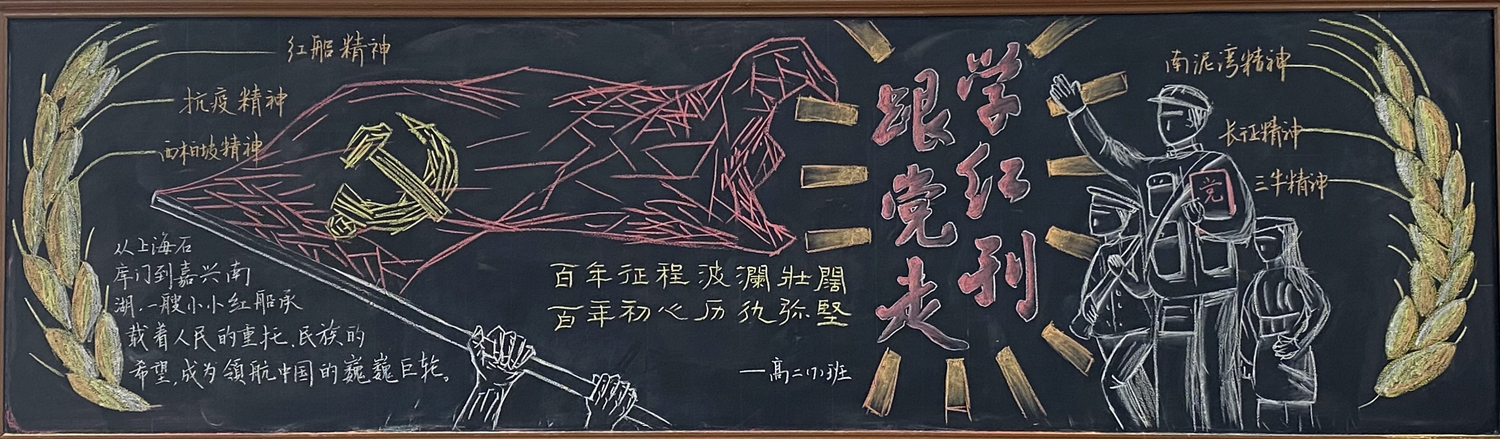 红船精神
抗疫精神
西柏坡精神
从上海石
库门到嘉兴南
湖,一艘小小红船承
载着人民的重托、民族的
希望,成为领航中国的巍巍巨轮。
百年征程波瀾壯闊
百年初心历仇弥堅
—高二(7)班
学红刊
跟党走
党
南泥湾精神
长征精神
三牛精神